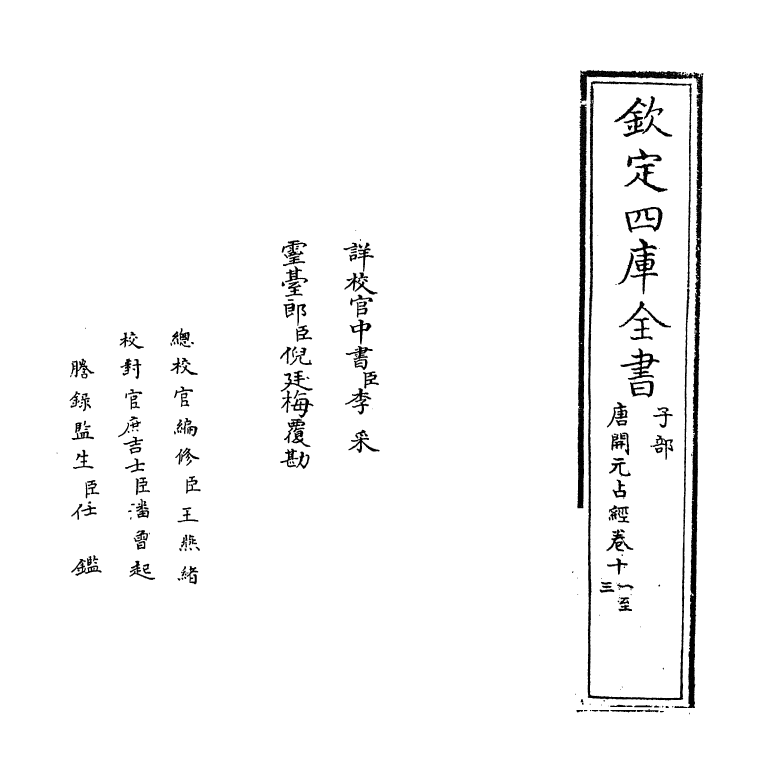 欽定四庫全書
子部
唐開元占經卷十一至三
詳校官中書臣李采
靈臺郎臣倪廷梅覆勘
總校官編修臣王燕緒
校對官庶吉士臣潘曾起
謄錄監生臣任鑑